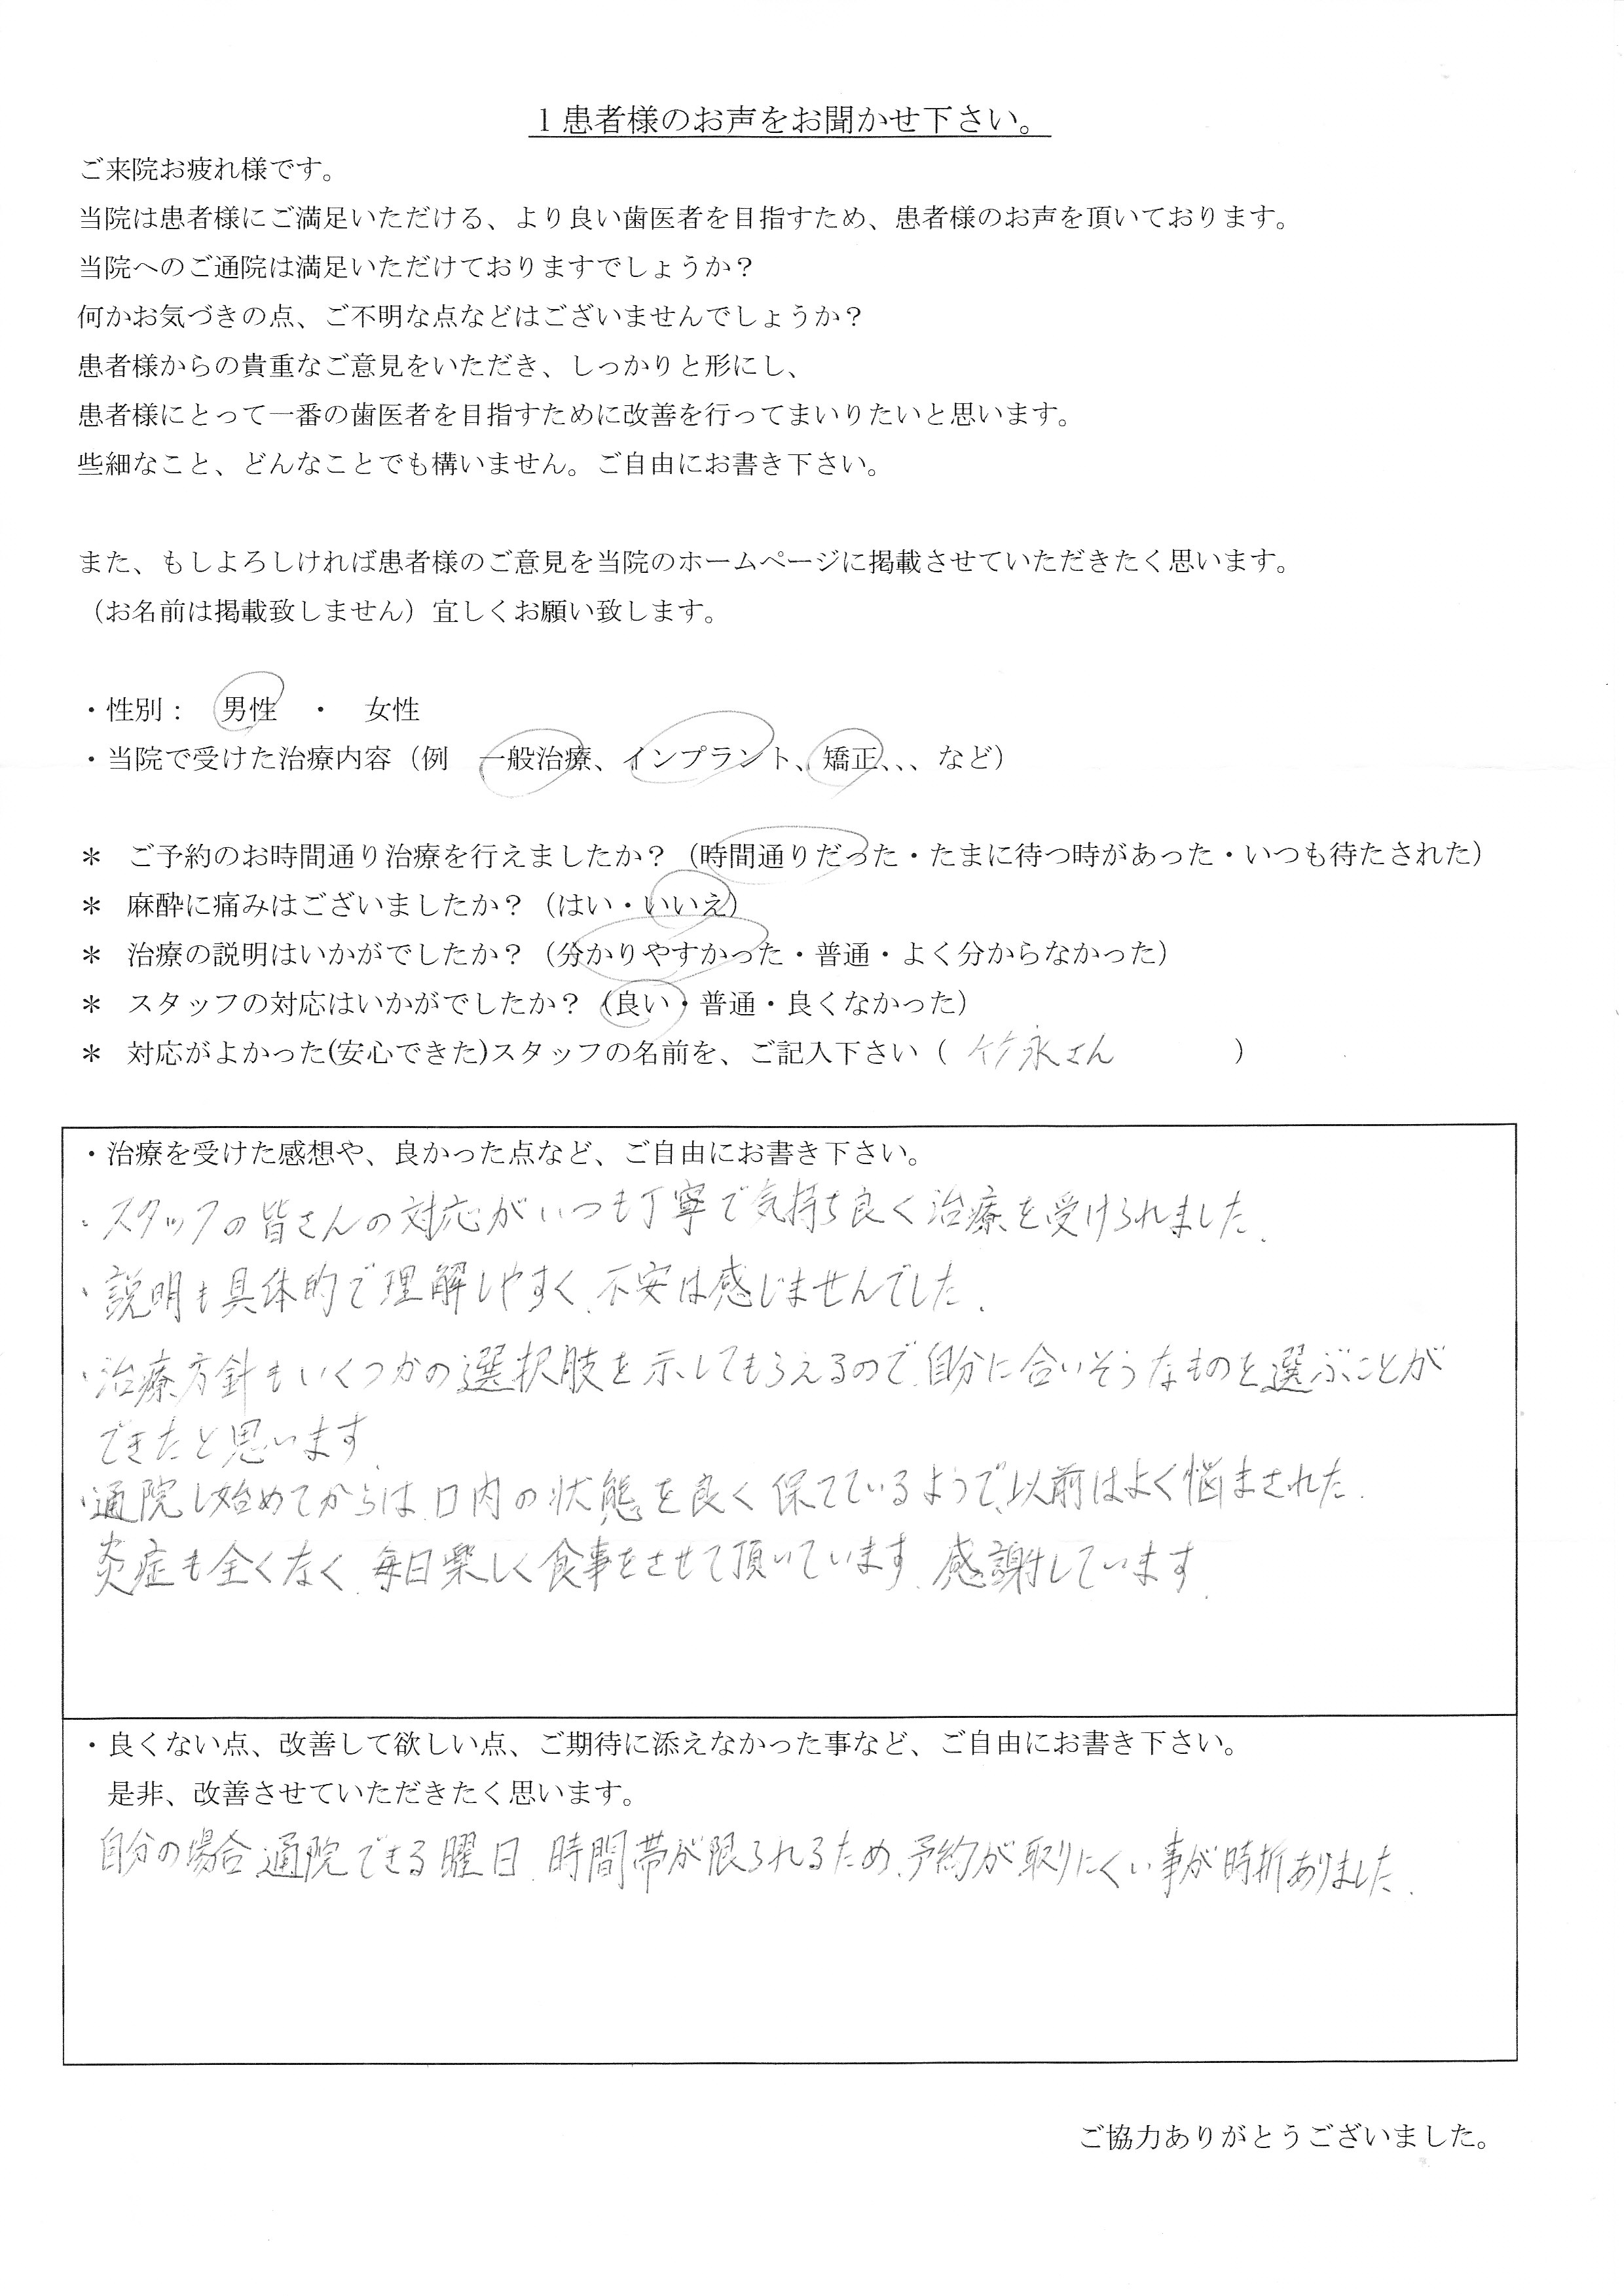 １患者様のお声をお聞かせ下さい。
ご来院お疲れ様です。
当院は患者様にご満足いただける、より良い歯医者を目指すため、患者様のお声を頂いております。
当院へのご通院は満足いただけておりますでしょうか？
何かお気づきの点、ご不明な点などはございませんでしょうか？
患者様からの貴重なご意見をいただき、しっかりと形にし、
患者様にとって一番の歯医者を目指すために改善を行ってまいりたいと思います。
些細なこと、どんなことでも構いません。ご自由にお書き下さい。
また、もしよろしければ患者様のご意見を当院のホームページに掲載させていただきたく思います。
（お名前は掲載致しません）宜しくお願い致します。
・性別：　男性　・　女性
・当院で受けた治療内容（例　一般治療、インプラント、矯正、、、など）
＊　ご予約のお時間通り治療を行えましたか？（時間通りだった・たまに待つ時があった・いつも待たされた）
＊　麻酔に痛みはございましたか？（はい・いいえ）
＊　治療の説明はいかがでしたか？（分かりやすかった・普通・よく分からなかった）
＊　スタッフの対応はいかがでしたか？（良い・普通・良くなかった）
＊　対応がよかった(安心できた)スタッフの名前を、ご記入下さい（　竹永さん　）
・治療を受けた感想や、良かった点など、ご自由にお書き下さい。
・スタッフの皆さんの対応がいつも丁寧で気持ち良く治療を受けられました.
・説明も具体的で理解しやすく、不安は感じませんでした.
・治療方針もいくつかの選択肢を示してもらえるので、自分に合いそうなものを選ぶことが
できたと思います.
・通院し始めてからは、口内の状態を良く保てているようで、以前はよく悩まされた.
炎症も全くなく、毎日楽しく食事をさせて頂いています、感謝しています.
・良くない点、改善して欲しい点、ご期待に添えなかった事など、ご自由にお書き下さい。
是非、改善させていただきたく思います。
自分の場合通院できる曜日、時間帯が限られるため、予約が取りにくい事が時折ありました.
ご協力ありがとうございました。